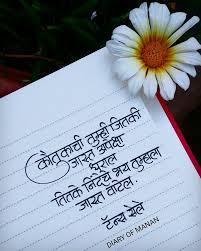 कौतुकाची तुम्ही जितकी
जास्त अपेक्षा
धराल
तितके निंदेचे भय तुम्हाला
जास्त वाटेल.
टॅन्स सेवे
DIARY OF MANAN